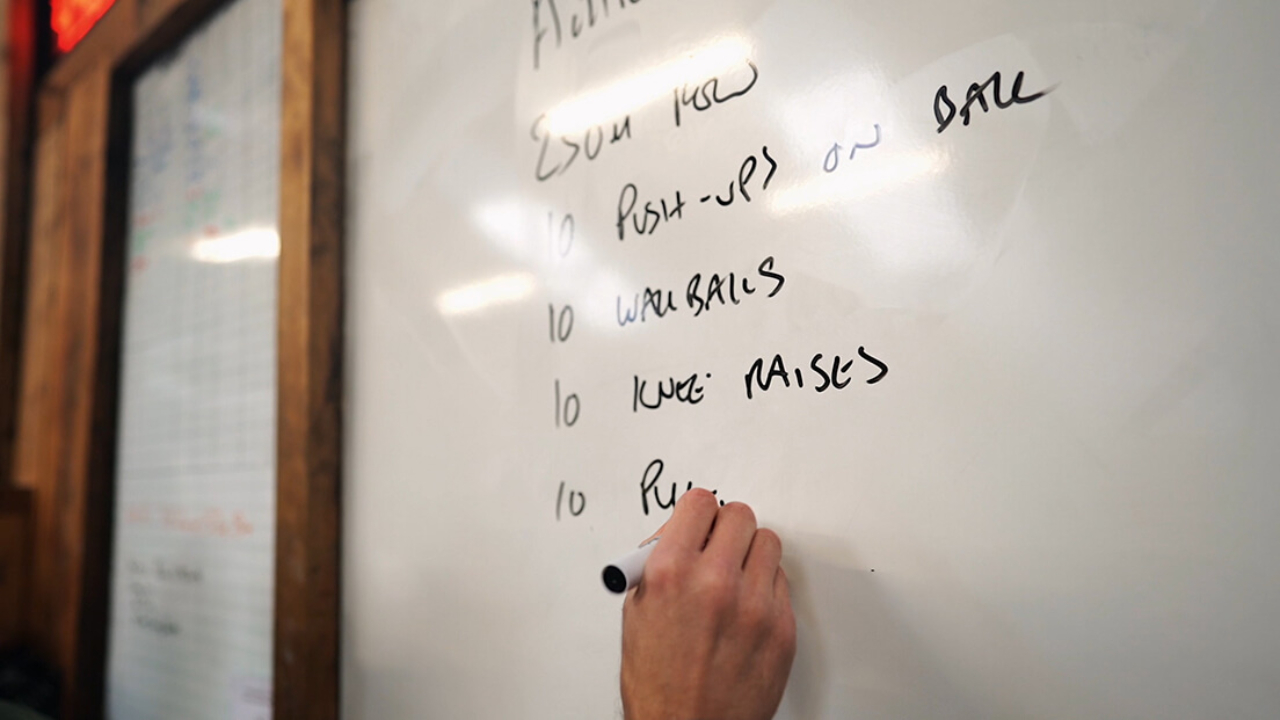 250M ROW
10 PUSH-UPS ON BALL
10 WALLBALLS
10 KNEE RAISES
10